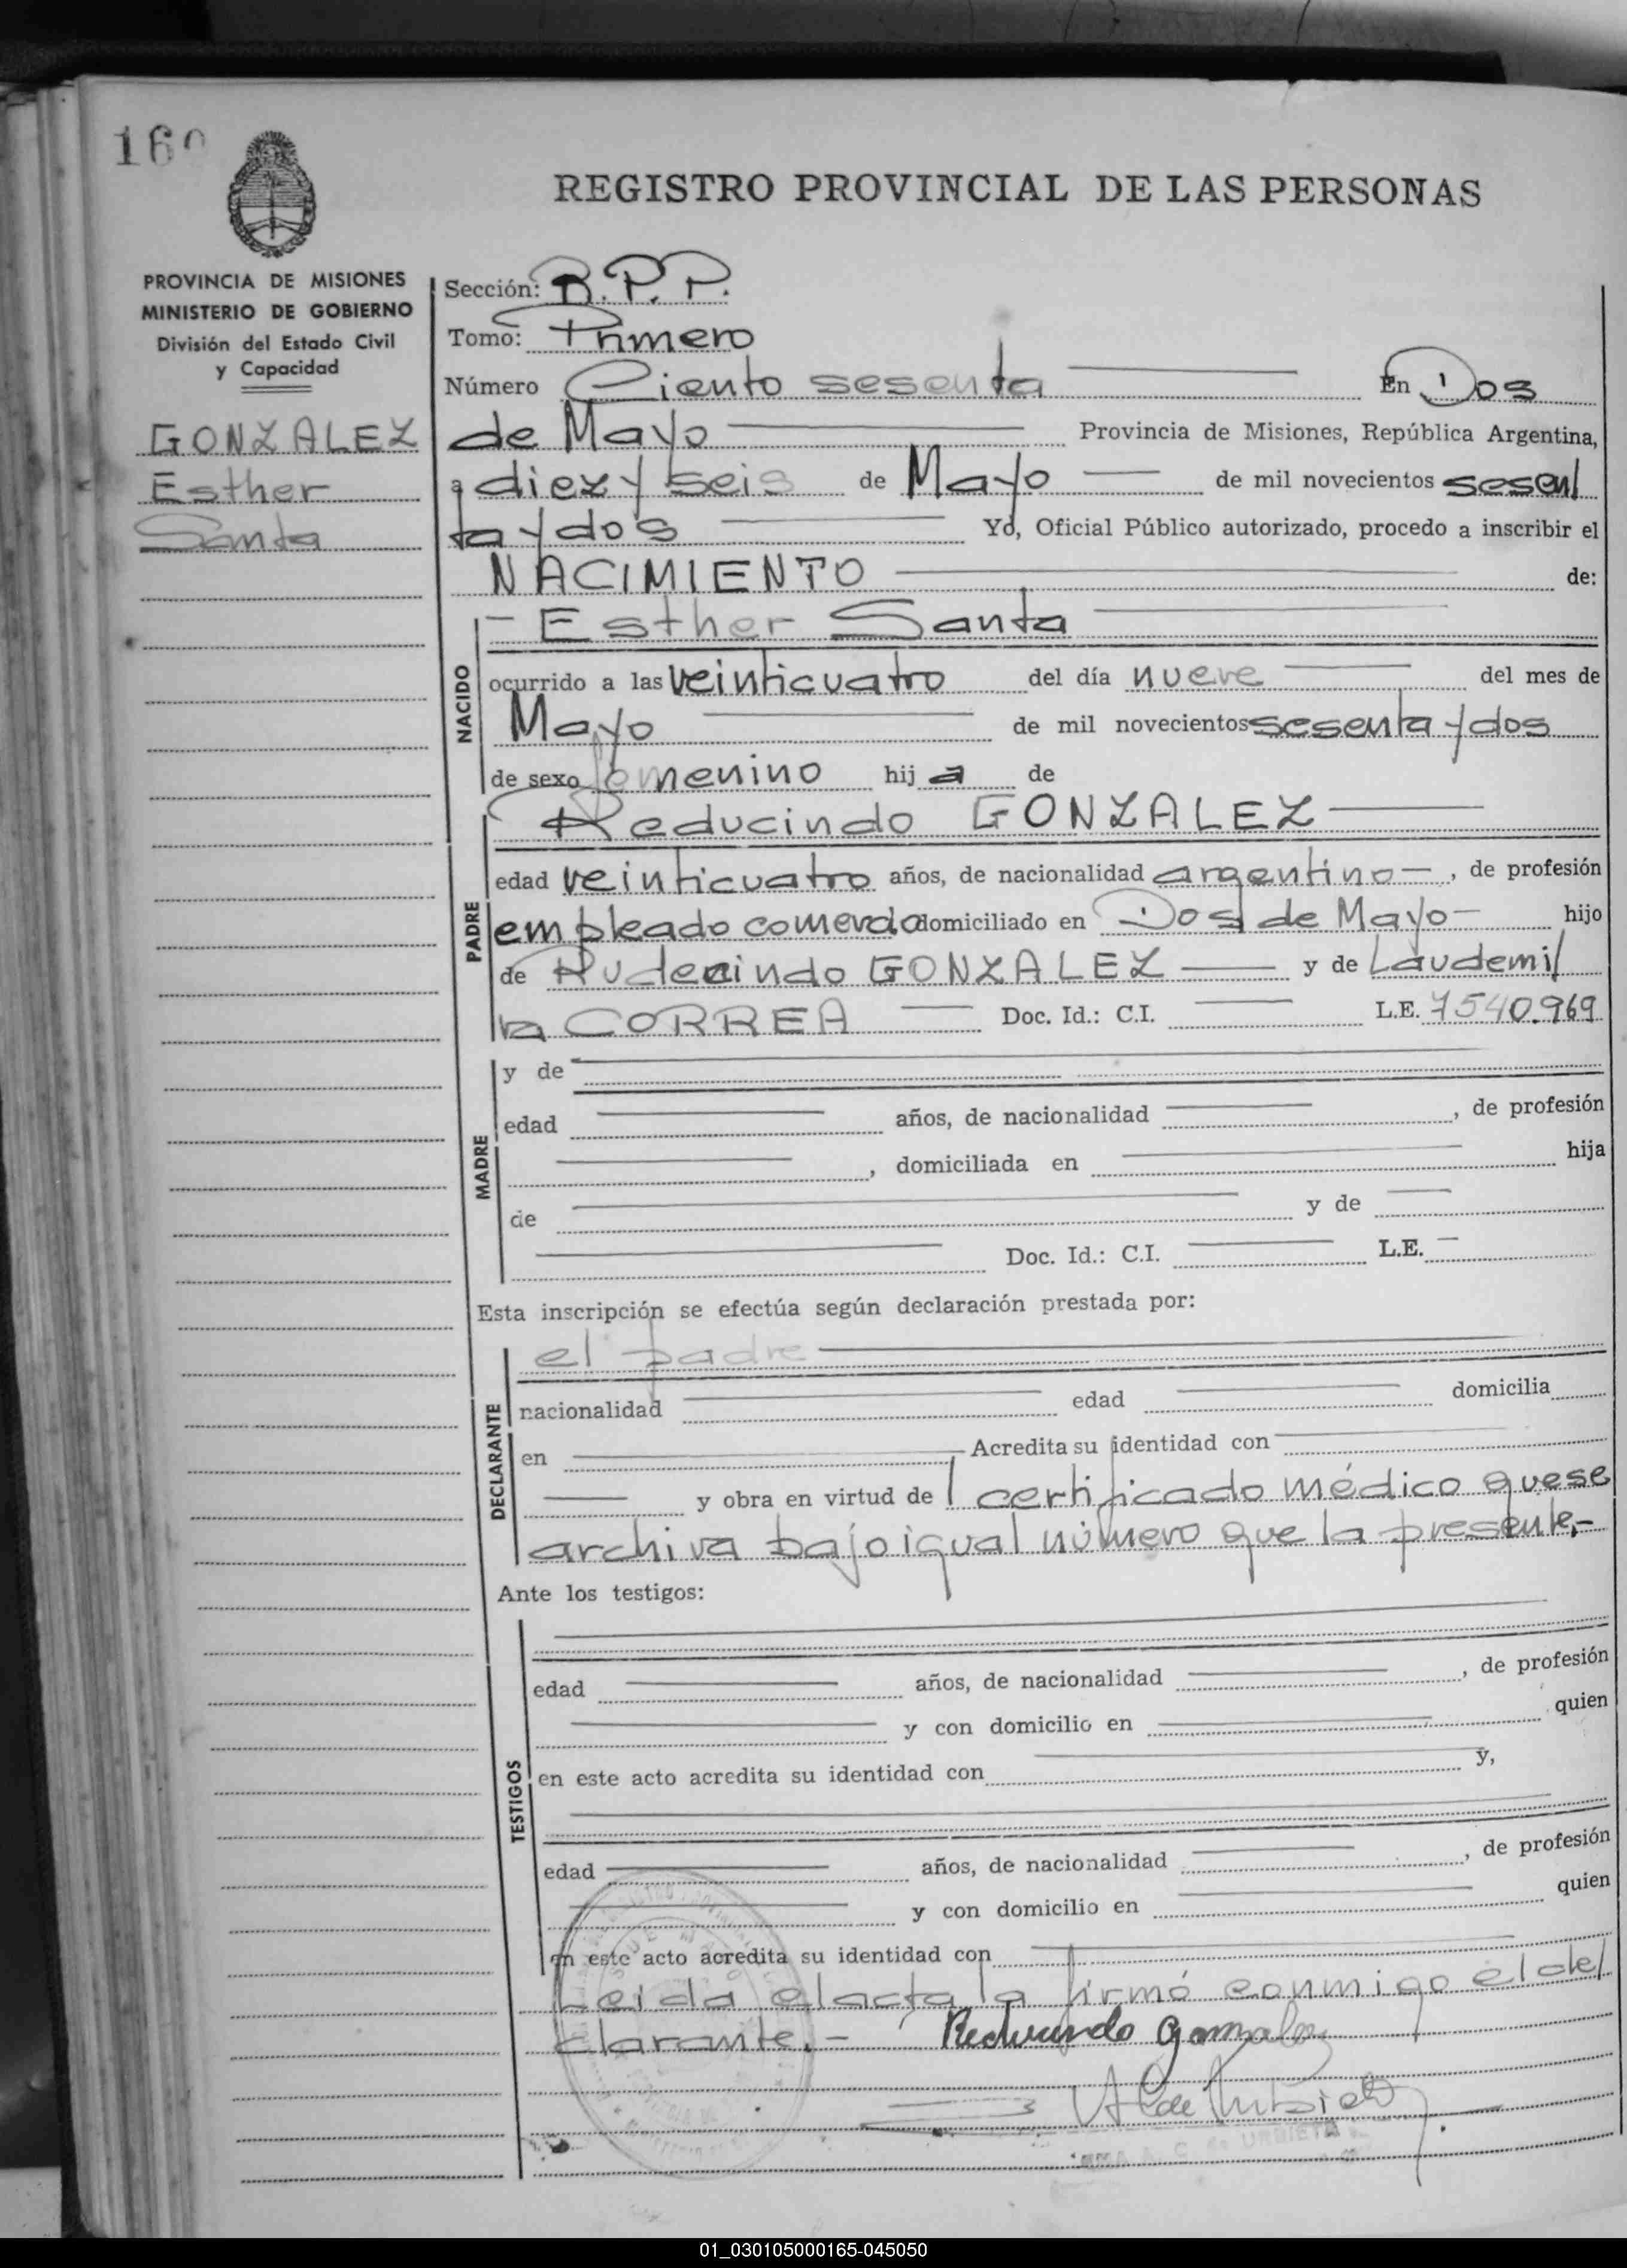 160
REGISTRO PROVINCIAL DE LAS PERSONAS
PROVINCIA DE MISIONES
MINISTERIO DE GOBIERNO
División del Estado Civil
y Capacidad
GONZALEZ
Esther
Santa
Sección: B.P.P.
Tomo: Primero
Número Ciento sesenta En Dos
de Mayo Provincia de Misiones, República Argentina,
a diez y seis de Mayo de mil novecientos sesen
ta y dos Yo, Oficial Público autorizado, procedo a inscribir el
NACIMIENTO de:
NACIDO
Esther Santa
ocurrido a las veinticuatro del día nueve del mes de
Mayo de mil novecientos sesenta y dos
de sexo femenino hij a de
PADRE
Reducindo GONZALEZ
edad veinticuatro años, de nacionalidad argentino , de profesión
empleado comercio domiciliado en Dos de Mayo hijo
de Rudecindo GONZALEZ y de Laudemi
la CORREA Doc. Id.: C.I. L.E. 7540.969
MADRE
y de
edad años, de nacionalidad , de profesión
, domiciliada en hija
de y de
Doc. Id.: C.I. L.E.
Esta inscripción se efectúa según declaración prestada por:
DECLARANTE
el padre
nacionalidad edad domicilia
en Acredita su identidad con
y obra en virtud de certificado médico que se
archiva bajo igual número que la presente.-
Ante los testigos:
TESTIGOS
edad años, de nacionalidad , de profesión
y con domicilio en quien
en este acto acredita su identidad con y,
edad años, de nacionalidad , de profesión
y con domicilio en quien
en este acto acredita su identidad con
Leida el acta la firmó conmigo el de
clarante.- Reducindo Gonzalez
A. C. de URBIETA
01_030105000165-045050